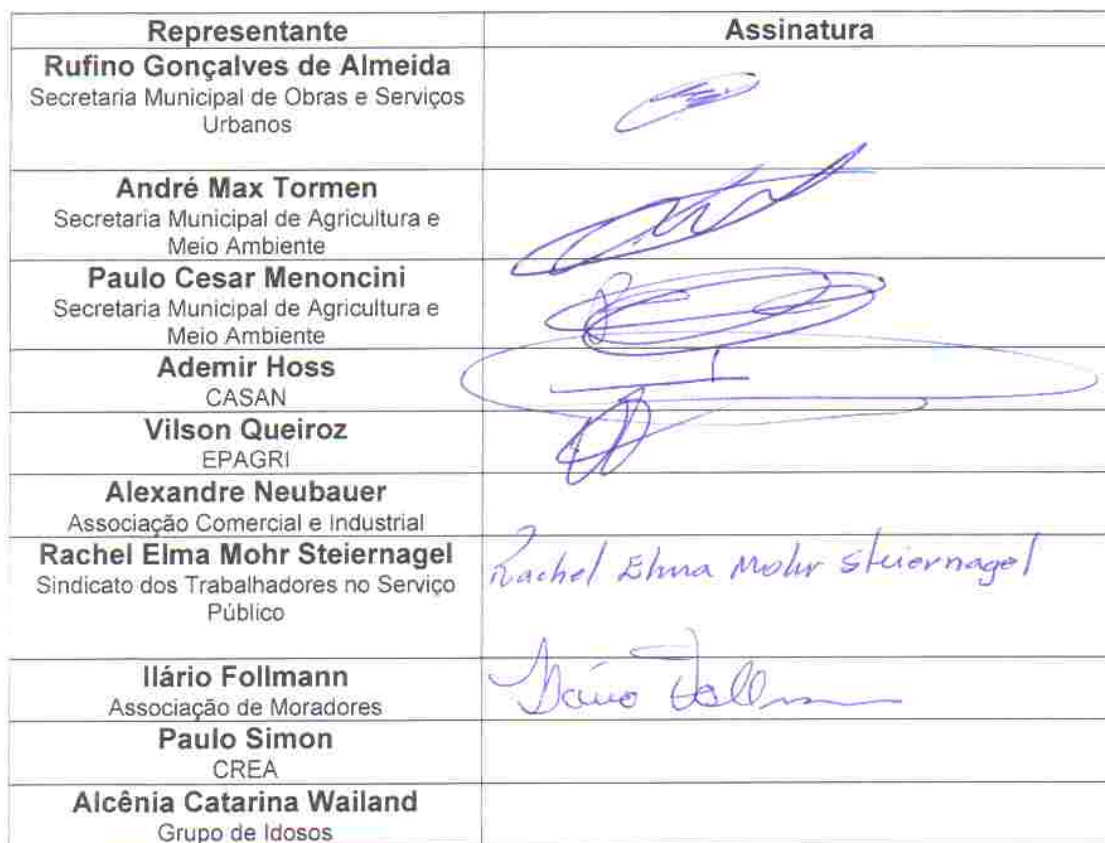 Representante Assinatura
Rufino Gonçalves de Almeida
Secretaria Municipal de Obras e Serviços
Urbanos
André Max Tormen
Secretaria Municipal de Agricultura e
Meio Ambiente
Paulo Cesar Menoncini
Secretaria Municipal de Agricultura e
Meio Ambiente
Ademir Hoss
CASAN
Vilson Queiroz
EPAGRI
Alexandre Neubauer
Associação Comercial e Industrial
Rachel Elma Mohr Steiernagel Rachel Elma Mohr Steiernagel
Sindicato dos Trabalhadores no Serviço
Público
Ilário Follmann
Associação de Moradores
Paulo Simon
CREA
Alcênia Catarina Wailand
Grupo de Idosos